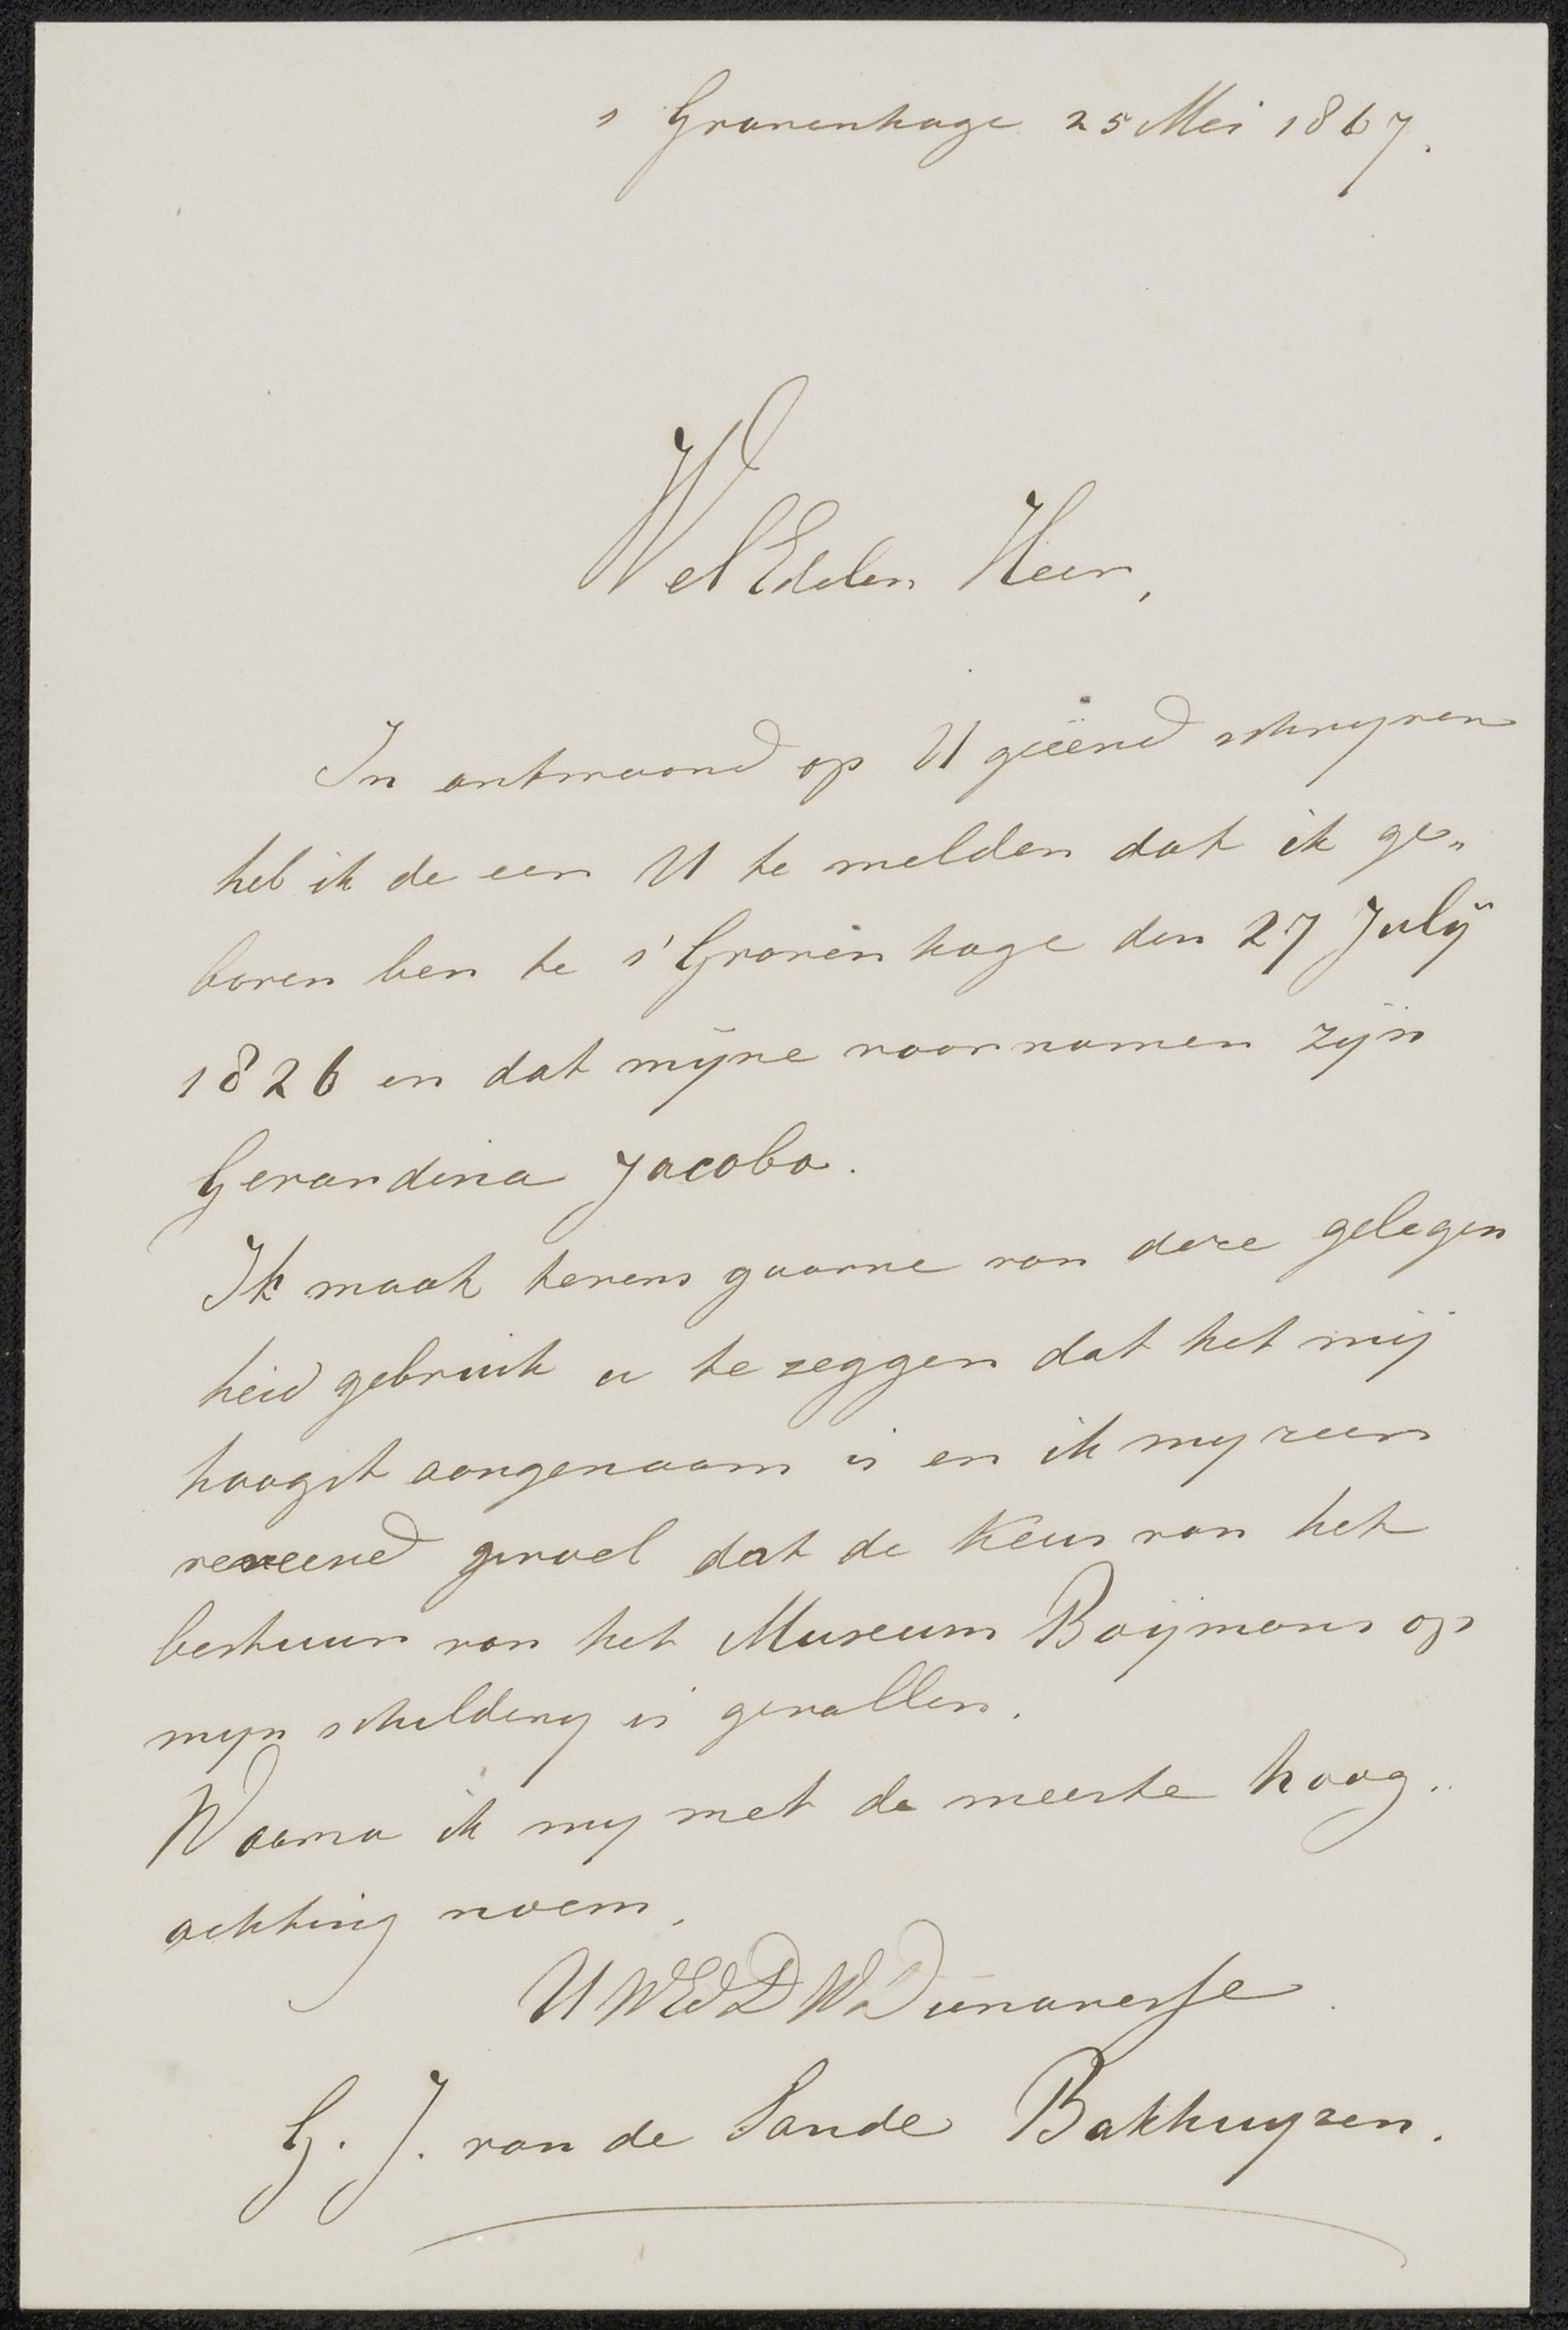 s Gravenhage 25 Mei 1867.
Wel Edelen Heer,
In antwoord op U geëerd schryven
heb ik de eer U te melden dat ik ge„
boren ben te s' Gravenhage den 27 Julÿ
1826 en dat mijne voornamen zijn
Gerardina Jacoba.
Ik maak tevens gaarne van deze gelegen
heid gebruik u te zeggen dat het mij
hoogst aangenaam is en ik my zeer
vereerd gevoel dat de keus van het
bestuur van het Museum Boijmans op
myn schildery is gevallen.
Waarna ik my met de meeste hoog„
achting noem,
U WEd D W Dienaresse
G. J. van de Sande Bakhuyzen.